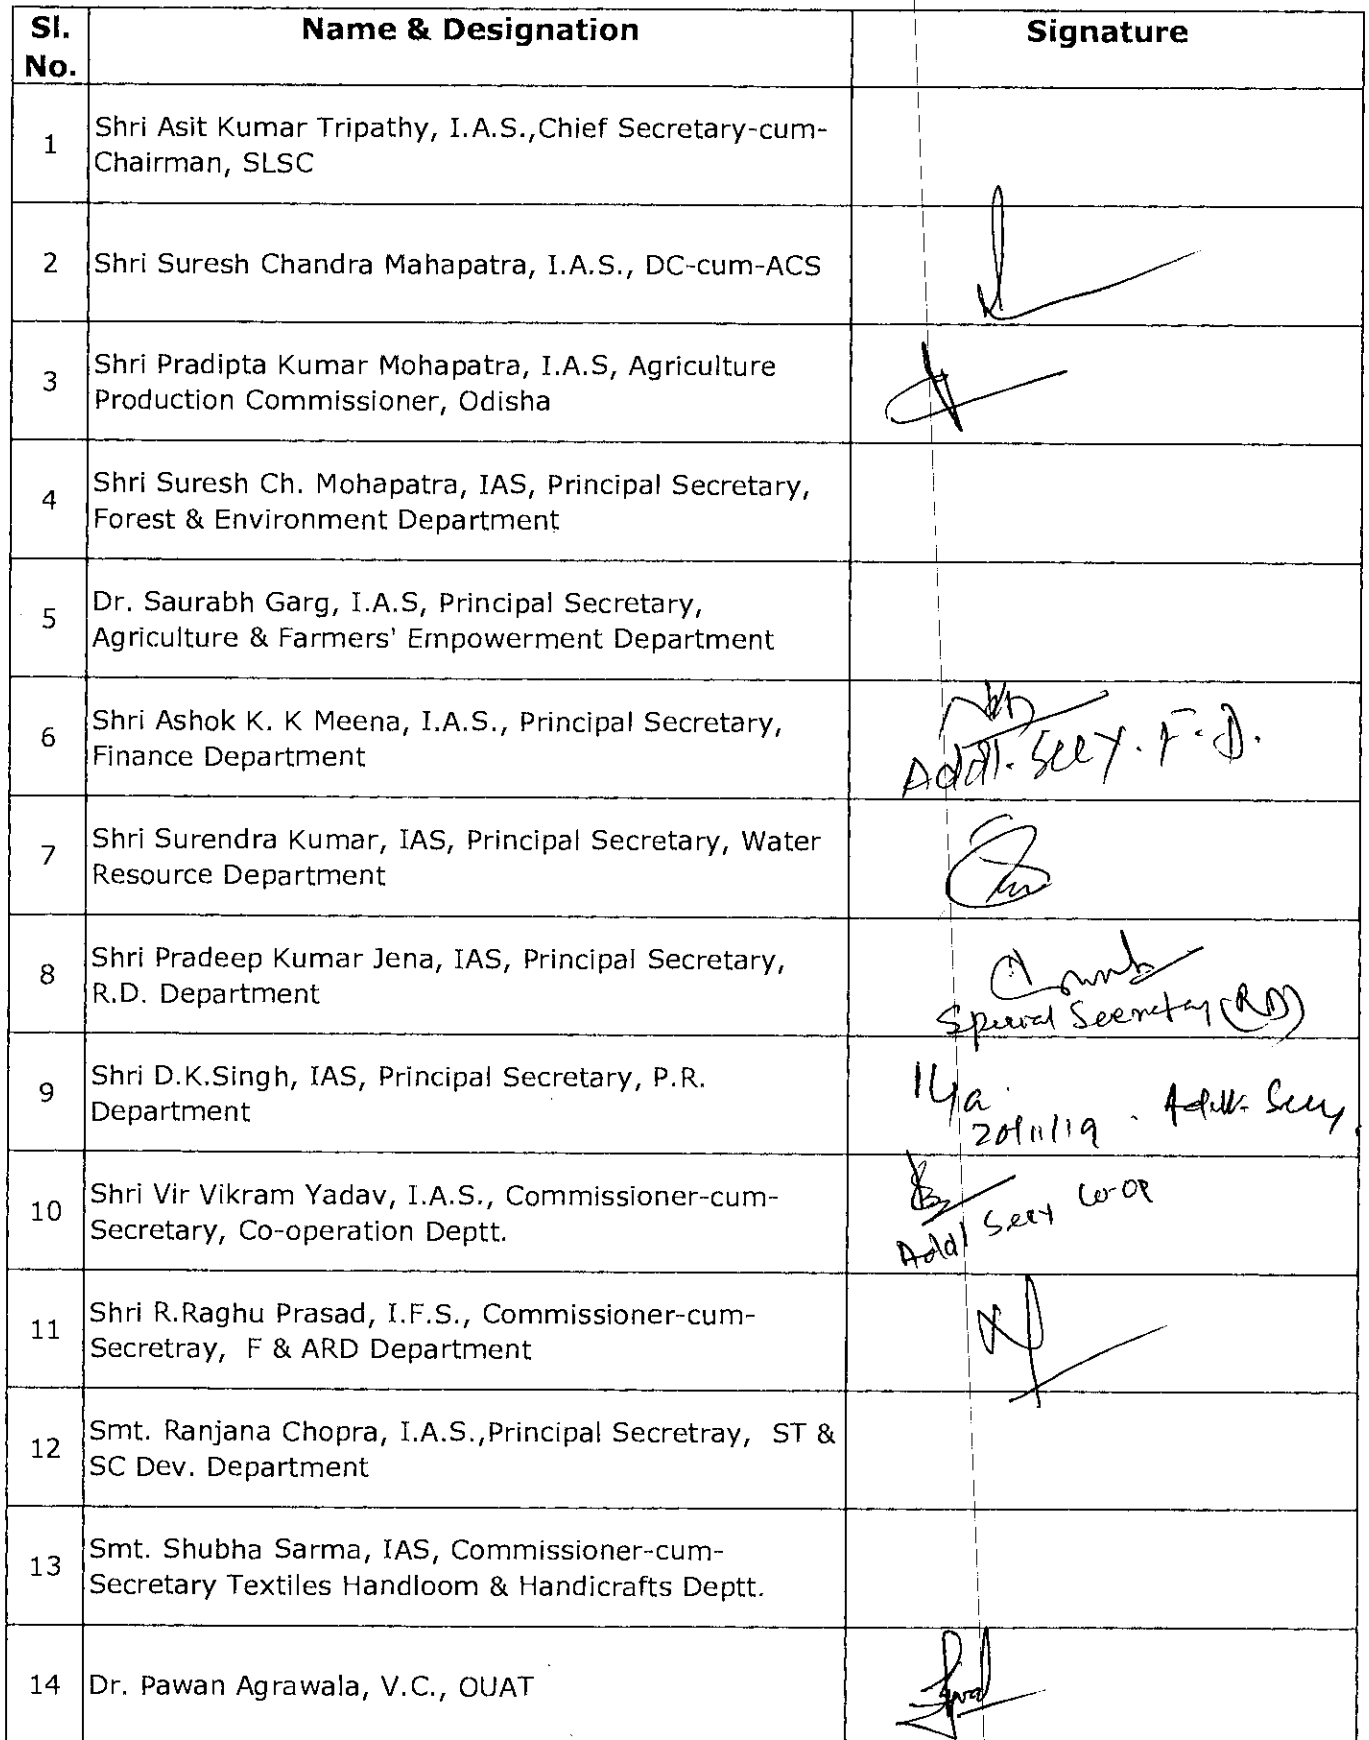 Sl. No.
Name & Designation
Signature
1
Shri Asit Kumar Tripathy, I.A.S.,Chief Secretary-cum-
Chairman, SLSC
2
Shri Suresh Chandra Mahapatra, I.A.S., DC-cum-ACS
3
Shri Pradipta Kumar Mohapatra, I.A.S, Agriculture
Production Commissioner, Odisha
4
Shri Suresh Ch. Mohapatra, IAS, Principal Secretary,
Forest & Environment Department
5
Dr. Saurabh Garg, I.A.S, Principal Secretary,
Agriculture & Farmers' Empowerment Department
6
Shri Ashok K. K Meena, I.A.S., Principal Secretary,
Finance Department
Addl. Secy. F.D.
7
Shri Surendra Kumar, IAS, Principal Secretary, Water
Resource Department
8
Shri Pradeep Kumar Jena, IAS, Principal Secretary,
R.D. Department
Special Secretary (RD)
9
Shri D.K.Singh, IAS, Principal Secretary, P.R.
Department
20/11/19 . Addl. Secy.
10
Shri Vir Vikram Yadav, I.A.S., Commissioner-cum-
Secretary, Co-operation Deptt.
Addl Secy Co-op
11
Shri R.Raghu Prasad, I.F.S., Commissioner-cum-
Secretray, F & ARD Department
12
Smt. Ranjana Chopra, I.A.S.,Principal Secretray, ST &
SC Dev. Department
13
Smt. Shubha Sarma, IAS, Commissioner-cum-
Secretary Textiles Handloom & Handicrafts Deptt.
14
Dr. Pawan Agrawala, V.C., OUAT